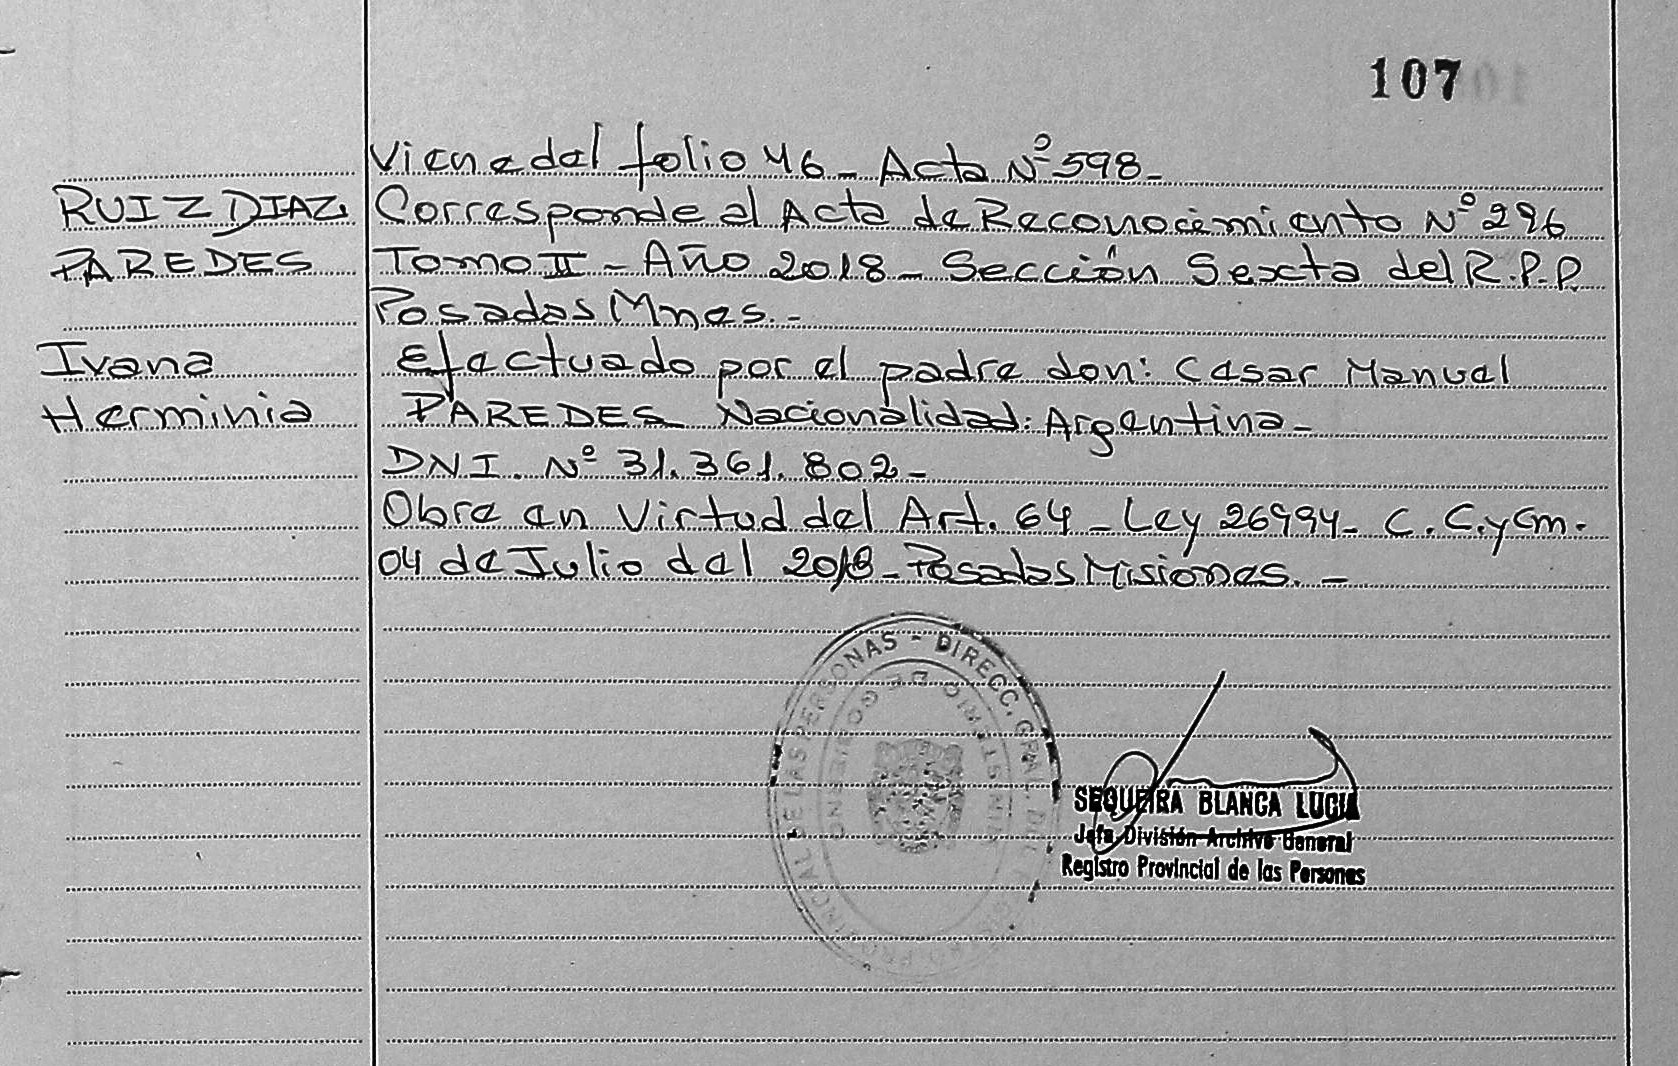 107
Viene del folio 46 - Acta Nº 598 -
RUIZ DIAZ
Corresponde al Acta de Reconocimiento Nº 296
PAREDES
Tomo II - Año 2018 - Sección Sexta del R.P.P.
Posadas Mnes. -
Ivana
Efectuado por el padre don: Cesar Manuel
Herminia
PAREDES Nacionalidad: Argentina -
DNI. Nº 31.361.802 -
Obra en Virtud del Art. 64 - Ley 26994 - C.C.y Cm.
04 de Julio del 2018 - Posadas Misiones. -
PERSONAS - DIRECC. GRAL.
MINISTERIO DE GOBIERNO
SEQUEIRA BLANCA LUCIA
Jefa División Archivo General
Registro Provincial de las Personas